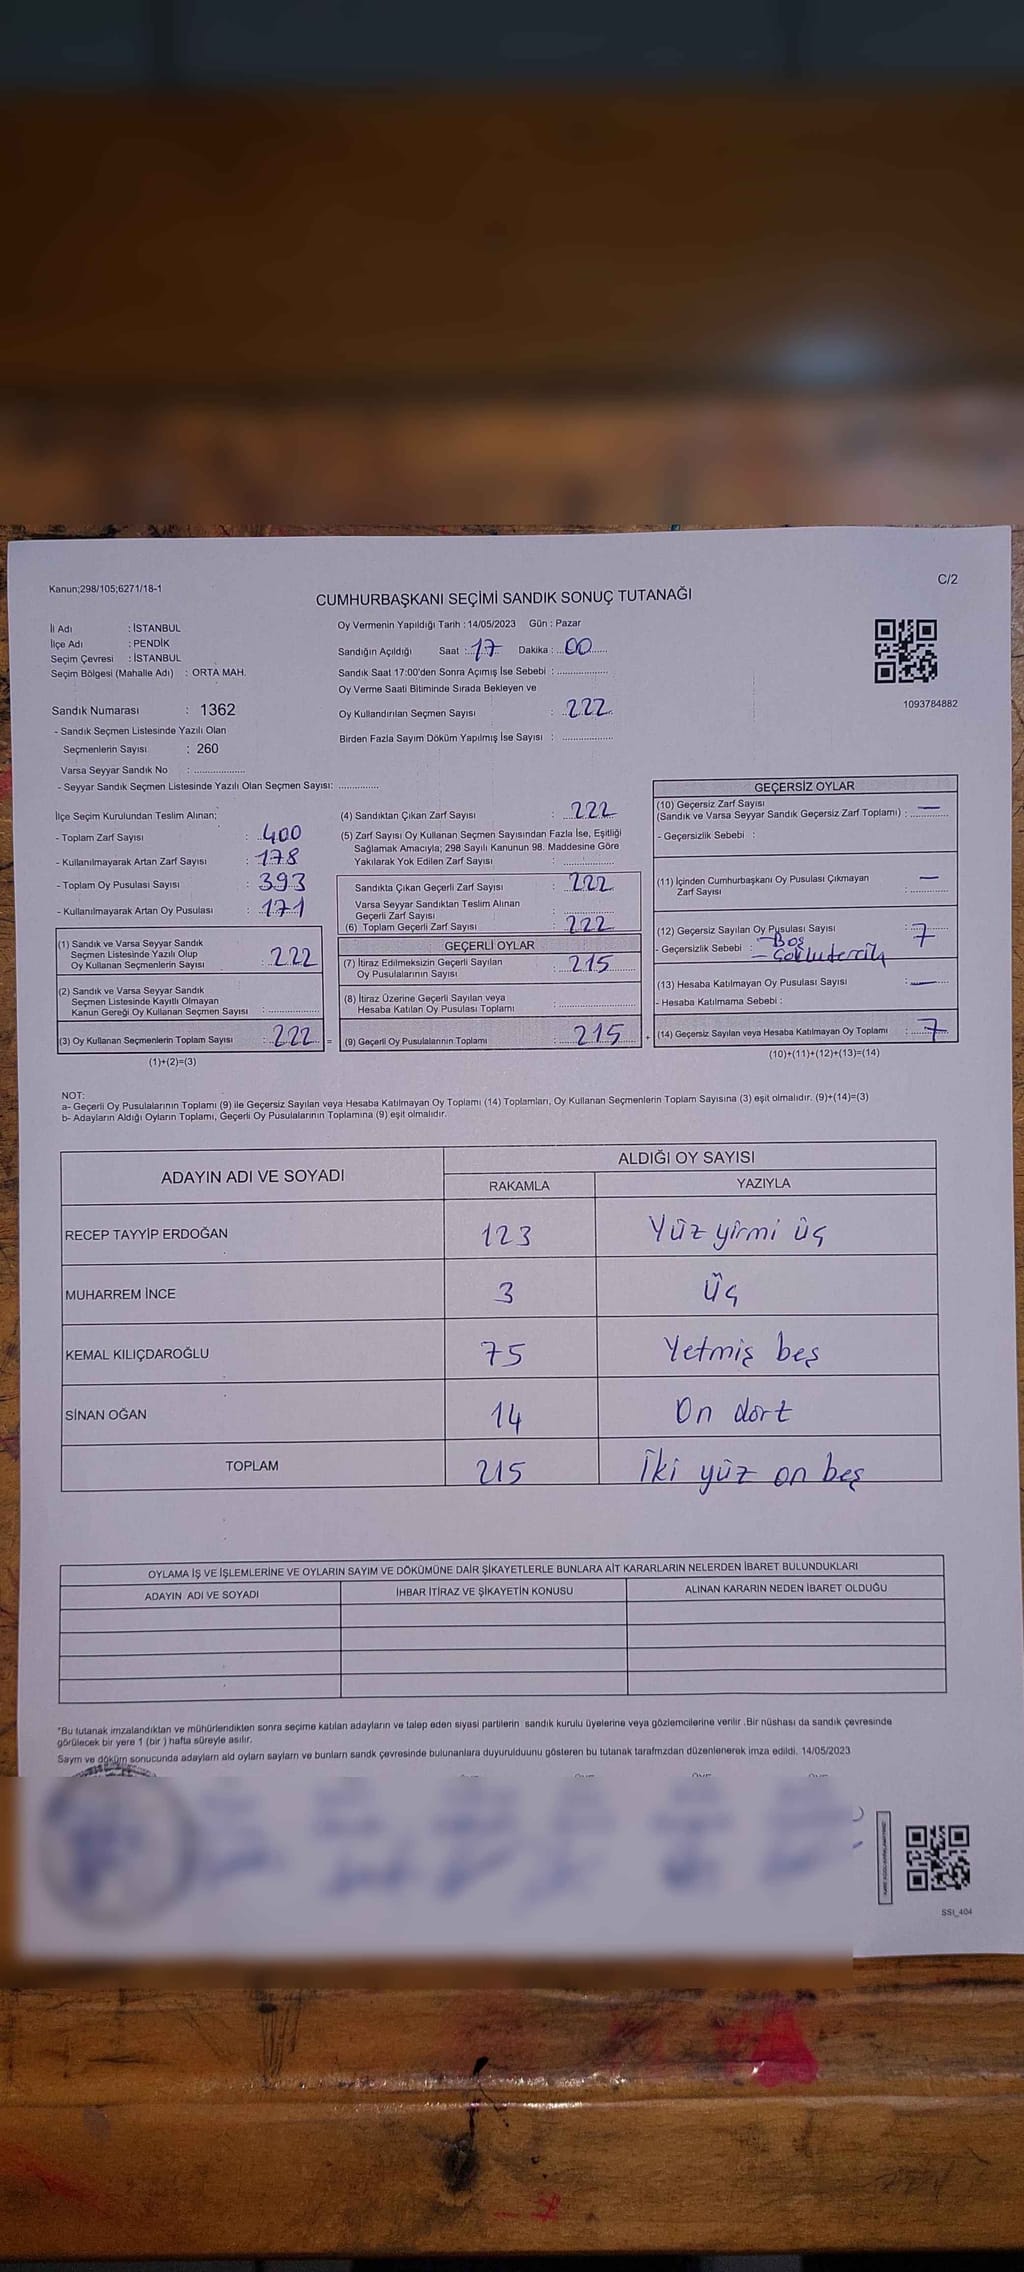 Kanun;298/105;6271/18-1
C/2
CUMHURBAŞKANI SEÇİMİ SANDIK SONUÇ TUTANAĞI
İl Adı : İSTANBUL
İlçe Adı : PENDİK
Seçim Çevresi : İSTANBUL
Seçim Bölgesi (Mahalle Adı) : ORTA MAH.
Sandık Numarası : 1362
- Sandık Seçmen Listesinde Yazılı Olan
Seçmenlerin Sayısı : 260
Varsa Seyyar Sandık No : ..................
- Seyyar Sandık Seçmen Listesinde Yazılı Olan Seçmen Sayısı: ..............
Oy Vermenin Yapıldığı Tarih : 14/05/2023 Gün : Pazar
Sandığın Açıldığı Saat : 17 Dakika : 00
Sandık Saat 17:00'den Sonra Açımış İse Sebebi : ..................
Oy Verme Saati Bitiminde Sırada Bekleyen ve
Oy Kullandırılan Seçmen Sayısı : 222
Birden Fazla Sayım Döküm Yapılmış İse Sayısı : ..................
1093784882
İlçe Seçim Kurulundan Teslim Alınan;
- Toplam Zarf Sayısı : 400
- Kullanılmayarak Artan Zarf Sayısı : 178
- Toplam Oy Pusulası Sayısı : 393
- Kullanılmayarak Artan Oy Pusulası : 171
(1) Sandık ve Varsa Seyyar Sandık
Seçmen Listesinde Yazılı Olup
Oy Kullanan Seçmenlerin Sayısı : 222
(2) Sandık ve Varsa Seyyar Sandık
Seçmen Listesinde Kayıtlı Olmayan
Kanun Gereği Oy Kullanan Seçmen Sayısı : ..................
(3) Oy Kullanan Seçmenlerin Toplam Sayısı : 222 =
(1)+(2)=(3)
(4) Sandıktan Çıkan Zarf Sayısı : 222
(5) Zarf Sayısı Oy Kullanan Seçmen Sayısından Fazla İse, Eşitliği
Sağlamak Amacıyla; 298 Sayılı Kanunun 98. Maddesine Göre
Yakılarak Yok Edilen Zarf Sayısı : ..................
Sandıkta Çıkan Geçerli Zarf Sayısı : 222
Varsa Seyyar Sandıktan Teslim Alınan
Geçerli Zarf Sayısı : ..................
(6) Toplam Geçerli Zarf Sayısı : 222
GEÇERLİ OYLAR
(7) İtiraz Edilmeksizin Geçerli Sayılan
Oy Pusulalarının Sayısı : 215
(8) İtiraz Üzerine Geçerli Sayılan veya
Hesaba Katılan Oy Pusulası Toplamı : ..................
(9) Geçerli Oy Pusulalarının Toplamı : 215 +
GEÇERSİZ OYLAR
(10) Geçersiz Zarf Sayısı
(Sandık ve Varsa Seyyar Sandık Geçersiz Zarf Toplamı) : —
- Geçersizlik Sebebi :
(11) İçinden Cumhurbaşkanı Oy Pusulası Çıkmayan
Zarf Sayısı : —
(12) Geçersiz Sayılan Oy Pusulası Sayısı : 7
- Geçersizlik Sebebi : - Boş
(13) Hesaba Katılmayan Oy Pusulası Sayısı : —
- Hesaba Katılmama Sebebi :
(14) Geçersiz Sayılan veya Hesaba Katılmayan Oy Toplamı : 7
(10)+(11)+(12)+(13)=(14)
NOT:
a- Geçerli Oy Pusulalarının Toplamı (9) ile Geçersiz Sayılan veya Hesaba Katılmayan Oy Toplamı (14) Toplamları, Oy Kullanan Seçmenlerin Toplam Sayısına (3) eşit olmalıdır. (9)+(14)=(3)
b- Adayların Aldığı Oyların Toplamı, Geçerli Oy Pusulalarının Toplamına (9) eşit olmalıdır.
ADAYIN ADI VE SOYADI
ALDIĞI OY SAYISI
RAKAMLA YAZIYLA
RECEP TAYYİP ERDOĞAN 123 Yüz yirmi üç
MUHARREM İNCE 3 Üç
KEMAL KILIÇDAROĞLU 75 Yetmiş beş
SİNAN OĞAN 14 On dört
TOPLAM 215 İki yüz on beş
OYLAMA İŞ VE İŞLEMLERİNE VE OYLARIN SAYIM VE DÖKÜMÜNE DAİR ŞİKAYETLERLE BUNLARA AİT KARARLARIN NELERDEN İBARET BULUNDUKLARI
ADAYIN ADI VE SOYADI İHBAR İTİRAZ VE ŞİKAYETİN KONUSU ALINAN KARARIN NEDEN İBARET OLDUĞU
*Bu tutanak imzalandıktan ve mühürlendikten sonra seçime katılan adayların ve talep eden siyasi partilerin sandık kurulu üyelerine veya gözlemcilerine verilir .Bir nüshası da sandık çevresinde
görülecek bir yere 1 (bir ) hafta süreyle asılır.
Sayım ve döküm sonucunda adayların ald oyların sayların ve bunların sandk çevresinde bulunanlara duyurulduunu gösteren bu tutanak tarafmzdan düzenlenerek imza edildi. 14/05/2023
SSI_404